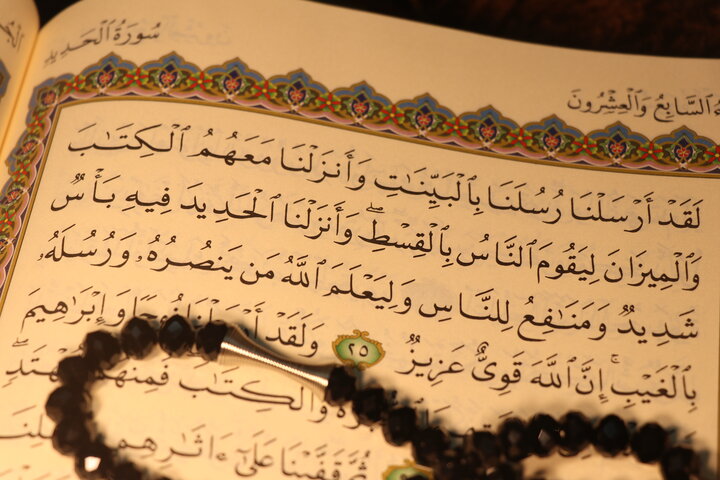 سُورَةُ ٱلْحَدِيدِ
ٱلسَّابِعُ وَٱلْعِشْرُونَ
لَقَدْ أَرْسَلْنَا رُسُلَنَا بِٱلْبَيِّنَٰتِ وَأَنزَلْنَا مَعَهُمُ ٱلْكِتَٰبَ
وَٱلْمِيزَانَ لِيَقُومَ ٱلنَّاسُ بِٱلْقِسْطِۖ وَأَنزَلْنَا ٱلْحَدِيدَ فِيهِ بَأْسٌ
شَدِيدٌ وَمَنَٰفِعُ لِلنَّاسِ وَلِيَعْلَمَ ٱللَّهُ مَن يَنصُرُهُۥ وَرُسُلَهُۥ
بِٱلْغَيْبِۚ إِنَّ ٱللَّهَ قَوِىٌّ عَزِيزٌ ٢٥ وَلَقَدْ وَإِبْرَٰهِيمَ
وَٱلْكِتَٰبَۖ فَمِنْهُم مُّهْتَدٍۖ
ثُمَّ قَفَّيْنَا عَلَىٰٓ ءَاثَٰرِهِم